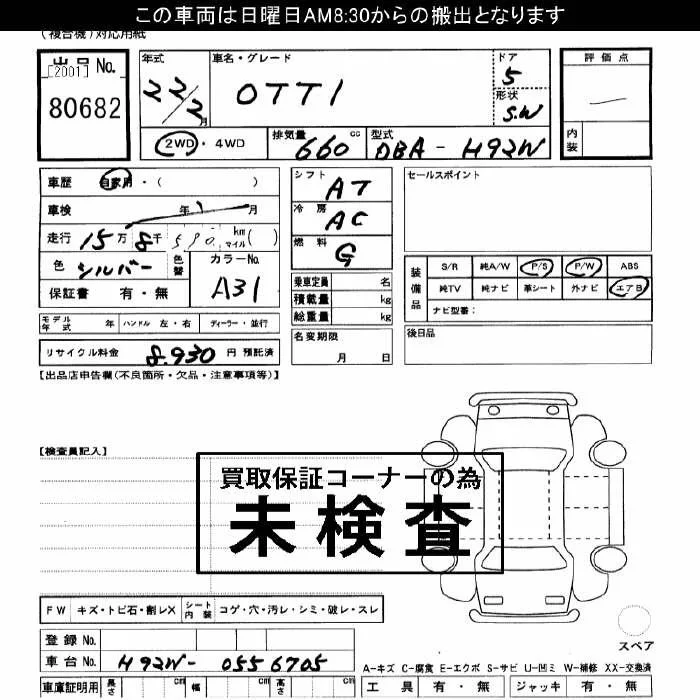 この車両は日曜日AM8:30からの搬出となります
(複合機)対応用紙
出品No.
[2001]
80682
年式
22/2月
車名・グレード
OTTI
ドア
5
形状
S.W
評価点
内装
2WD・4WD
排気量
660cc
型式
DBA-H92W
車歴 自家用・( )
車検 年 月
走行 15万 8千 590 km マイル( )
色 シルバー 色替 カラーNo. A31
保証書 有・無
シフト
AT
冷房
AC
燃料
G
乗車定員 名
積載量 kg
総重量 kg
セールスポイント
装備品
S/R 純A/W P/S P/W ABS
純TV 純ナビ 革シート 外ナビ エアB
ナビ型番:
モデル年式 年 ハンドル 左・右 ディーラー・並行
名変期限
月 日
後日品
リサイクル料金 8.930 円 預託済
【出品店申告欄(不良箇所・欠品・注意事項等)】
【検査員記入】
買取保証コーナーの為
未検査
FW キズ・トビ石・割レX シート内装 コゲ・穴・汚レ・シミ・破レ・スレ
登録No.
車台No. H92W-0556705
車庫証明用 長さ cm 幅 cm 高さ cm
スペア
A-キズ C-腐食 E-エクボ S-サビ U-凹ミ W-補修 XX-交換済
工具 有・無 ジャッキ 有・無